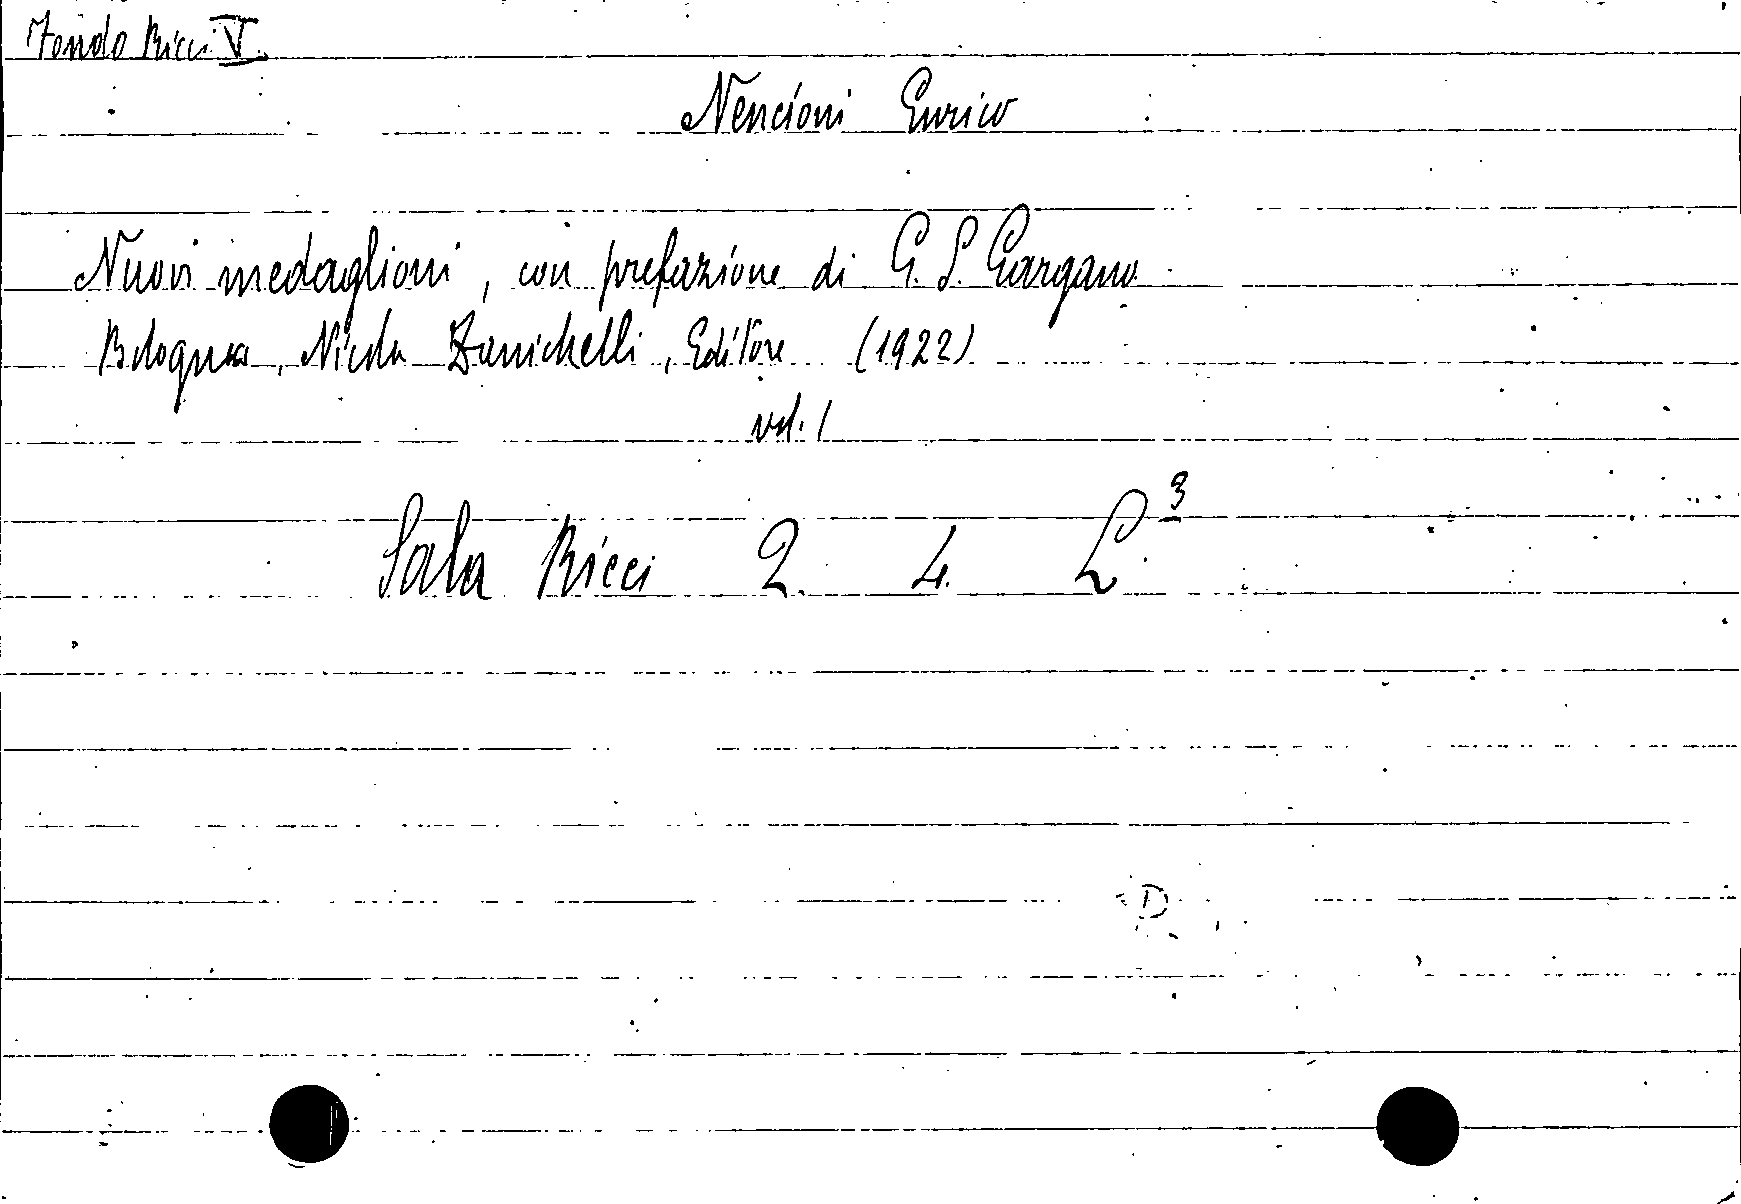 Fondo Ricci V.
Nencioni Enrico
Nuovi medaglioni, con prefazione di G. S. Gargano.
Bologna, Nicola Zanichelli, Editore (1922)
vol. 1
Sala Ricci 2. 4. L.³